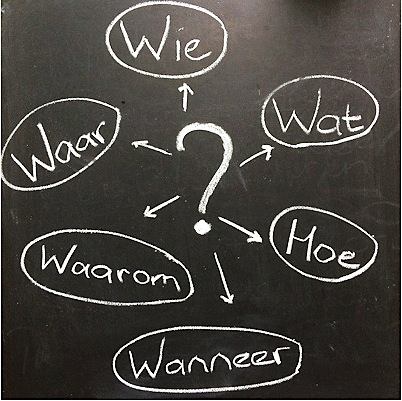 Wie
Waar
Wat
?
Waarom
Hoe
Wanneer